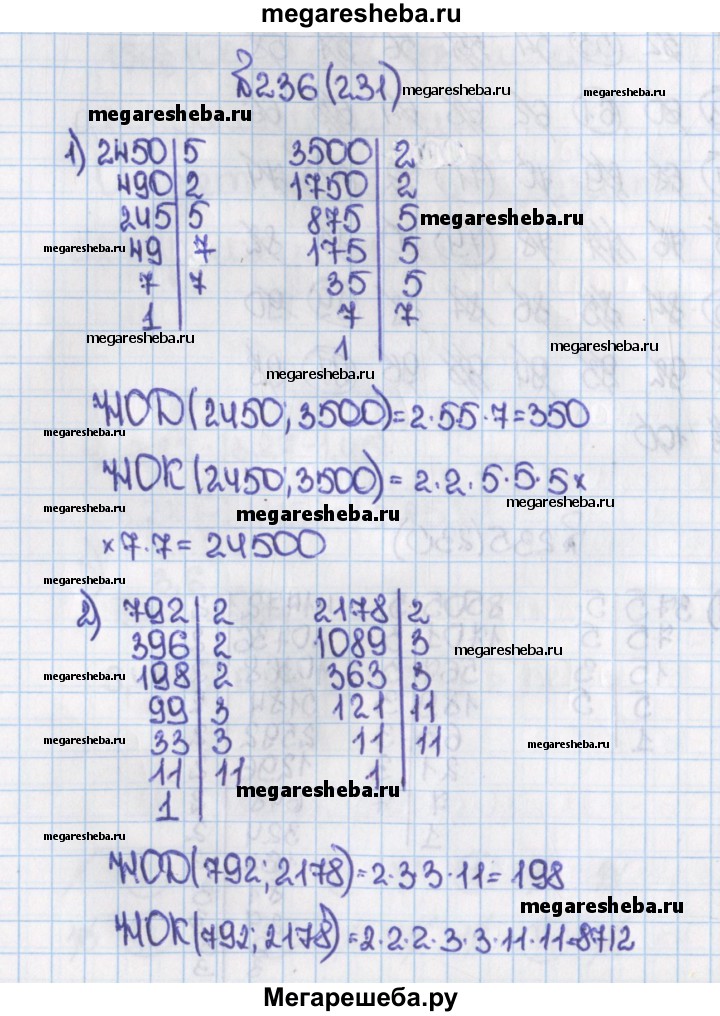 megaresheba.ru
№236 (231) megaresheba.ru
megaresheba.ru
1) 2450 | 5 3500 | 2
490 | 2 1750 | 2
245 | 5 875 | 5 megaresheba.ru
megaresheba.ru 49 | 7 175 | 5
7 | 7 35 | 5
1 7 | 7
megaresheba.ru 1 megaresheba.ru
megaresheba.ru
НОД(2450; 3500) = 2·5·5·7 = 350
megaresheba.ru
НОК(2450; 3500) = 2·2·5·5·5 ×
megaresheba.ru
megaresheba.ru
× 7·7 = 24500
2) 792 | 2 2178 | 2
396 | 2 1089 | 3 megaresheba.ru
megaresheba.ru 198 | 2 363 | 3
99 | 3 121 | 11
megaresheba.ru 33 | 3 11 | 11 megaresheba.ru
11 | 11 1
megaresheba.ru
1
megaresheba.ru
НОД(792; 2178) = 2·3·3·11 = 198
megaresheba.ru
НОК(792; 2178) = 2·2·2·3·3·11·11=8712
Мегарешеба.ру